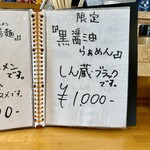 メン
です。
限定
『黒醤油
らぁめん』
しん蔵ブラック
です。
¥1000-